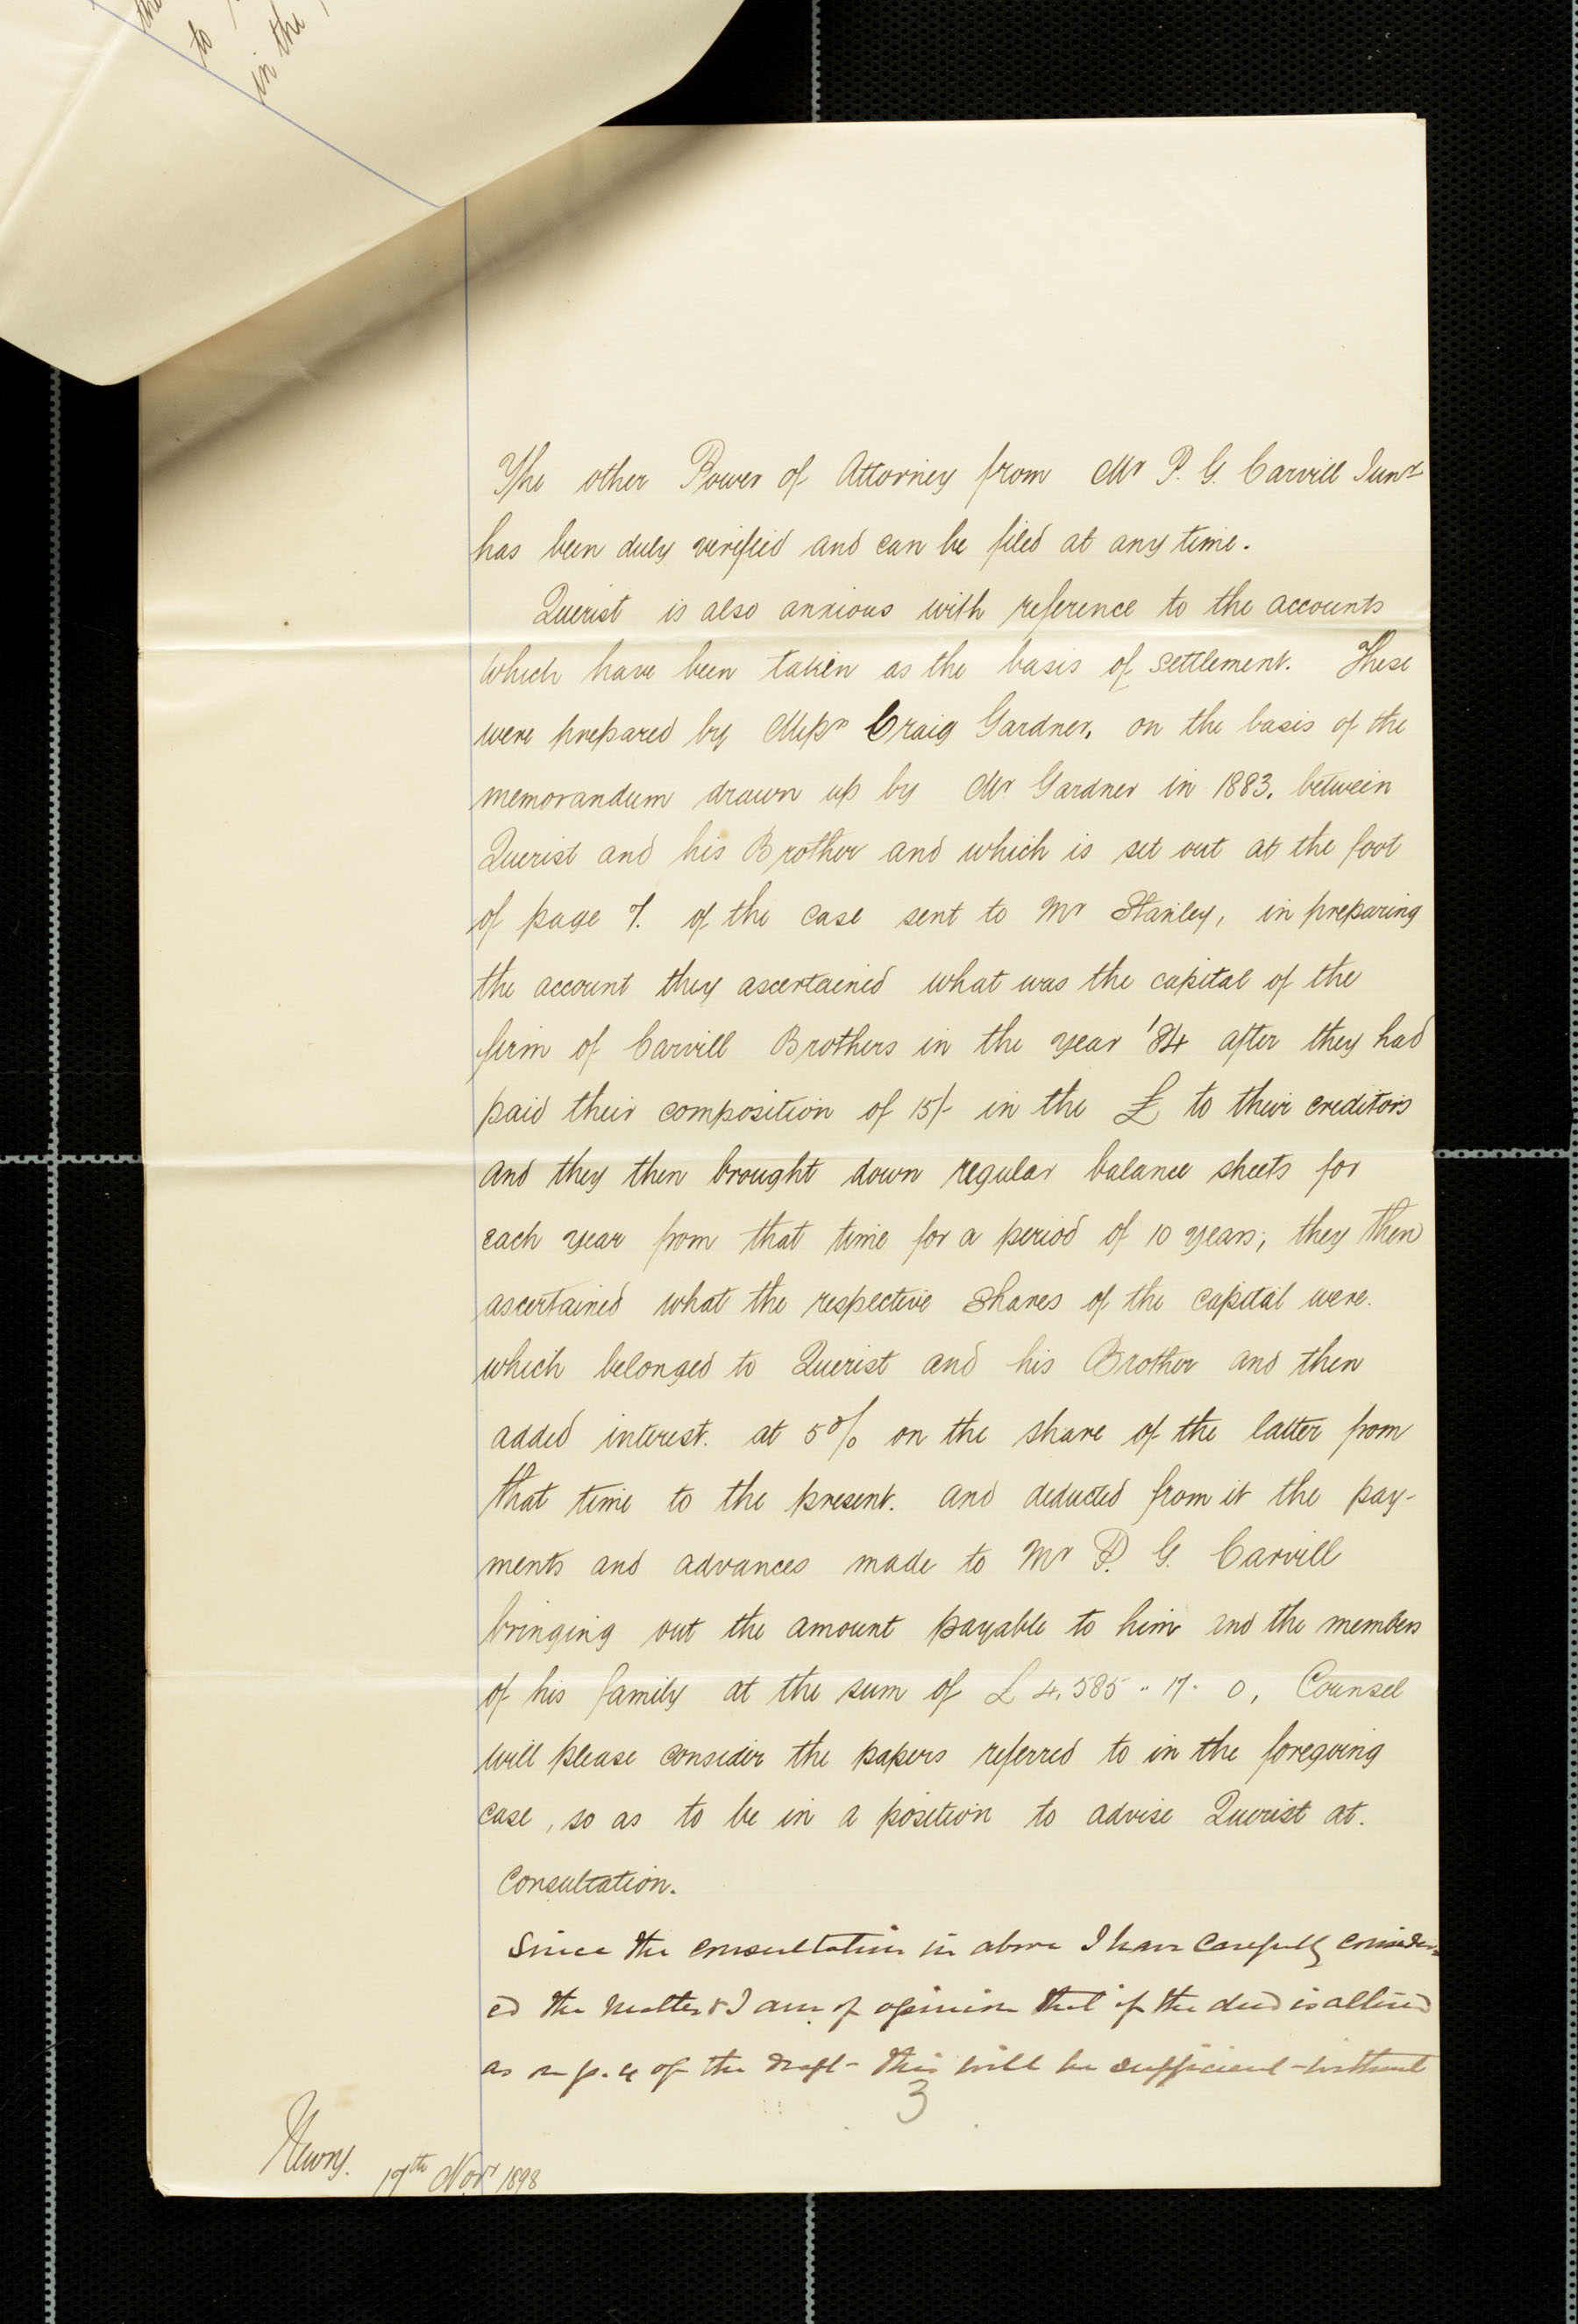 the
to
in the
The other Power of Attorney from Mr P. G. Carvill Junr
has been duly verified and can be filed at any time.
Querist is also anxious with reference to the accounts
which have been taken as the basis of settlement. These
were prepared by Messrs Craig Gardner, on the basis of the
memorandum drawn up by Mr Gardner in 1883. between
Querist and his Brother and which is set out at the foot
of page 7. of the case sent to Mr Stanley, in preparing
the account they ascertained what was the capital of the
firm of Carvill Brothers in the year '84 after they had
paid their composition of 15/- in the £ to their creditors
and they then brought down regular balance sheets for
each year from that time for a period of 10 years; they then
ascertained what the respective shares of the capital were.
which belonged to Querist and his Brother and then
added interest. at 5% on the share of the latter from
that time to the present. and deducted from it the pay-
ments and advances made to Mr P. G. Carvill
bringing out the amount payable to him and the members
of his family at the sum of £4,585 .. 17. 0, Counsel
will please consider the papers referred to in the foregoing
case, so as to be in a position to advise Querist at.
Consultation.
Since the consultation in above I have carefully consider-
ed the matter & I am of opinion that if the deed is altered
as in p. 4 of the draft - this will be sufficient - without
3
Newry. 17th Novr 1898